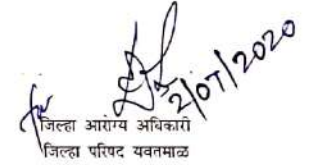 2/07/2020
for
जिल्हा आरोग्य अधिकारी
जिल्हा परिषद यवतमाळ